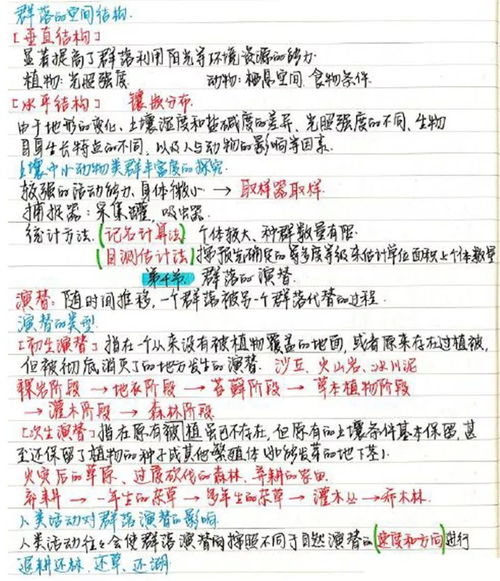 群落的空间结构.
[垂直结构]
显著提高了群落利用阳光等环境资源的能力.
植物:光照强度 动物:栖息空间、食物条件.
[水平结构] 镶嵌分布.
由于地形的变化、土壤湿度和盐碱度的差异、光照强度的不同、生物
自身生长特点的不同,以及人与动物的影响等因素.
土壤中小动物类群丰富度的探究.
较强的活动能力、身体微小 → 取样器取样.
捕捉器:采集罐、吸虫器.
统计方法.(记名计算法)个体较大、种群数量有限.
(目测估计法)按预先确定的多度等级来估计单位面积上个体数量
第4节. 群落的演替.
演替:随时间推移,一个群落被另一个群落代替的过程.
演替的类型
[初生演替]指在一个从来没有被植物覆盖的地面,或者原来存在过植被,
但被彻底消灭了的地方发生的演替. 沙丘、火山岩、冰川泥
裸岩阶段 → 地衣阶段 → 苔藓阶段 → 草本植物阶段
→ 灌木阶段 → 森林阶段
[次生演替]指在原有被植虽已不存在,但原有的土壤条件基本保留,甚
至还保留了植物的种子或其他繁殖体(能发芽的地下茎).
火灾后的草原、过度砍伐的森林、弃耕的农田.
弃耕 → 一年生的杂草 → 多年生的杂草 → 灌木丛 → 乔木林.
人类活动对群落演替的影响.
人类活动往往会使群落演替按照不同于自然演替的(速度和方向)进行
退耕还林、还草、还湖